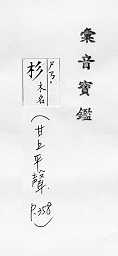 彙音寶鑑
杉 木名
(廿上平聲 P.358)